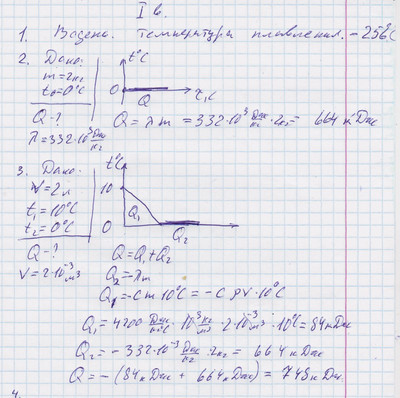 I в.
1. Водень. Температура плавления. -256°C
2. Дано:
m = 2кг
t₀=0°C
Q-?
λ=332·10³ Дж/кг
t°C
0
Q
τ,c
Q = λm = 332·10³ Дж/кг ·2кг= 664 кДж
3. Дано:
V=2л
t₁=10°C
t₂=0°C
Q-?
V=2·10⁻³м³
t°C
10
0
Q₁
Q₂
Q=Q₁+Q₂
Q₂=-λm
Q₁=-cm10°C = -cρV·10°C
Q₁=4200 Дж/кг°C ·10³ кг/м³ ·2·10⁻³м³ ·10°C=84кДж
Q₂=-332·10⁻³ Дж/кг ·2кг= 664кДж
Q=-(84кДж + 664кДж)= 748кДж.
4.